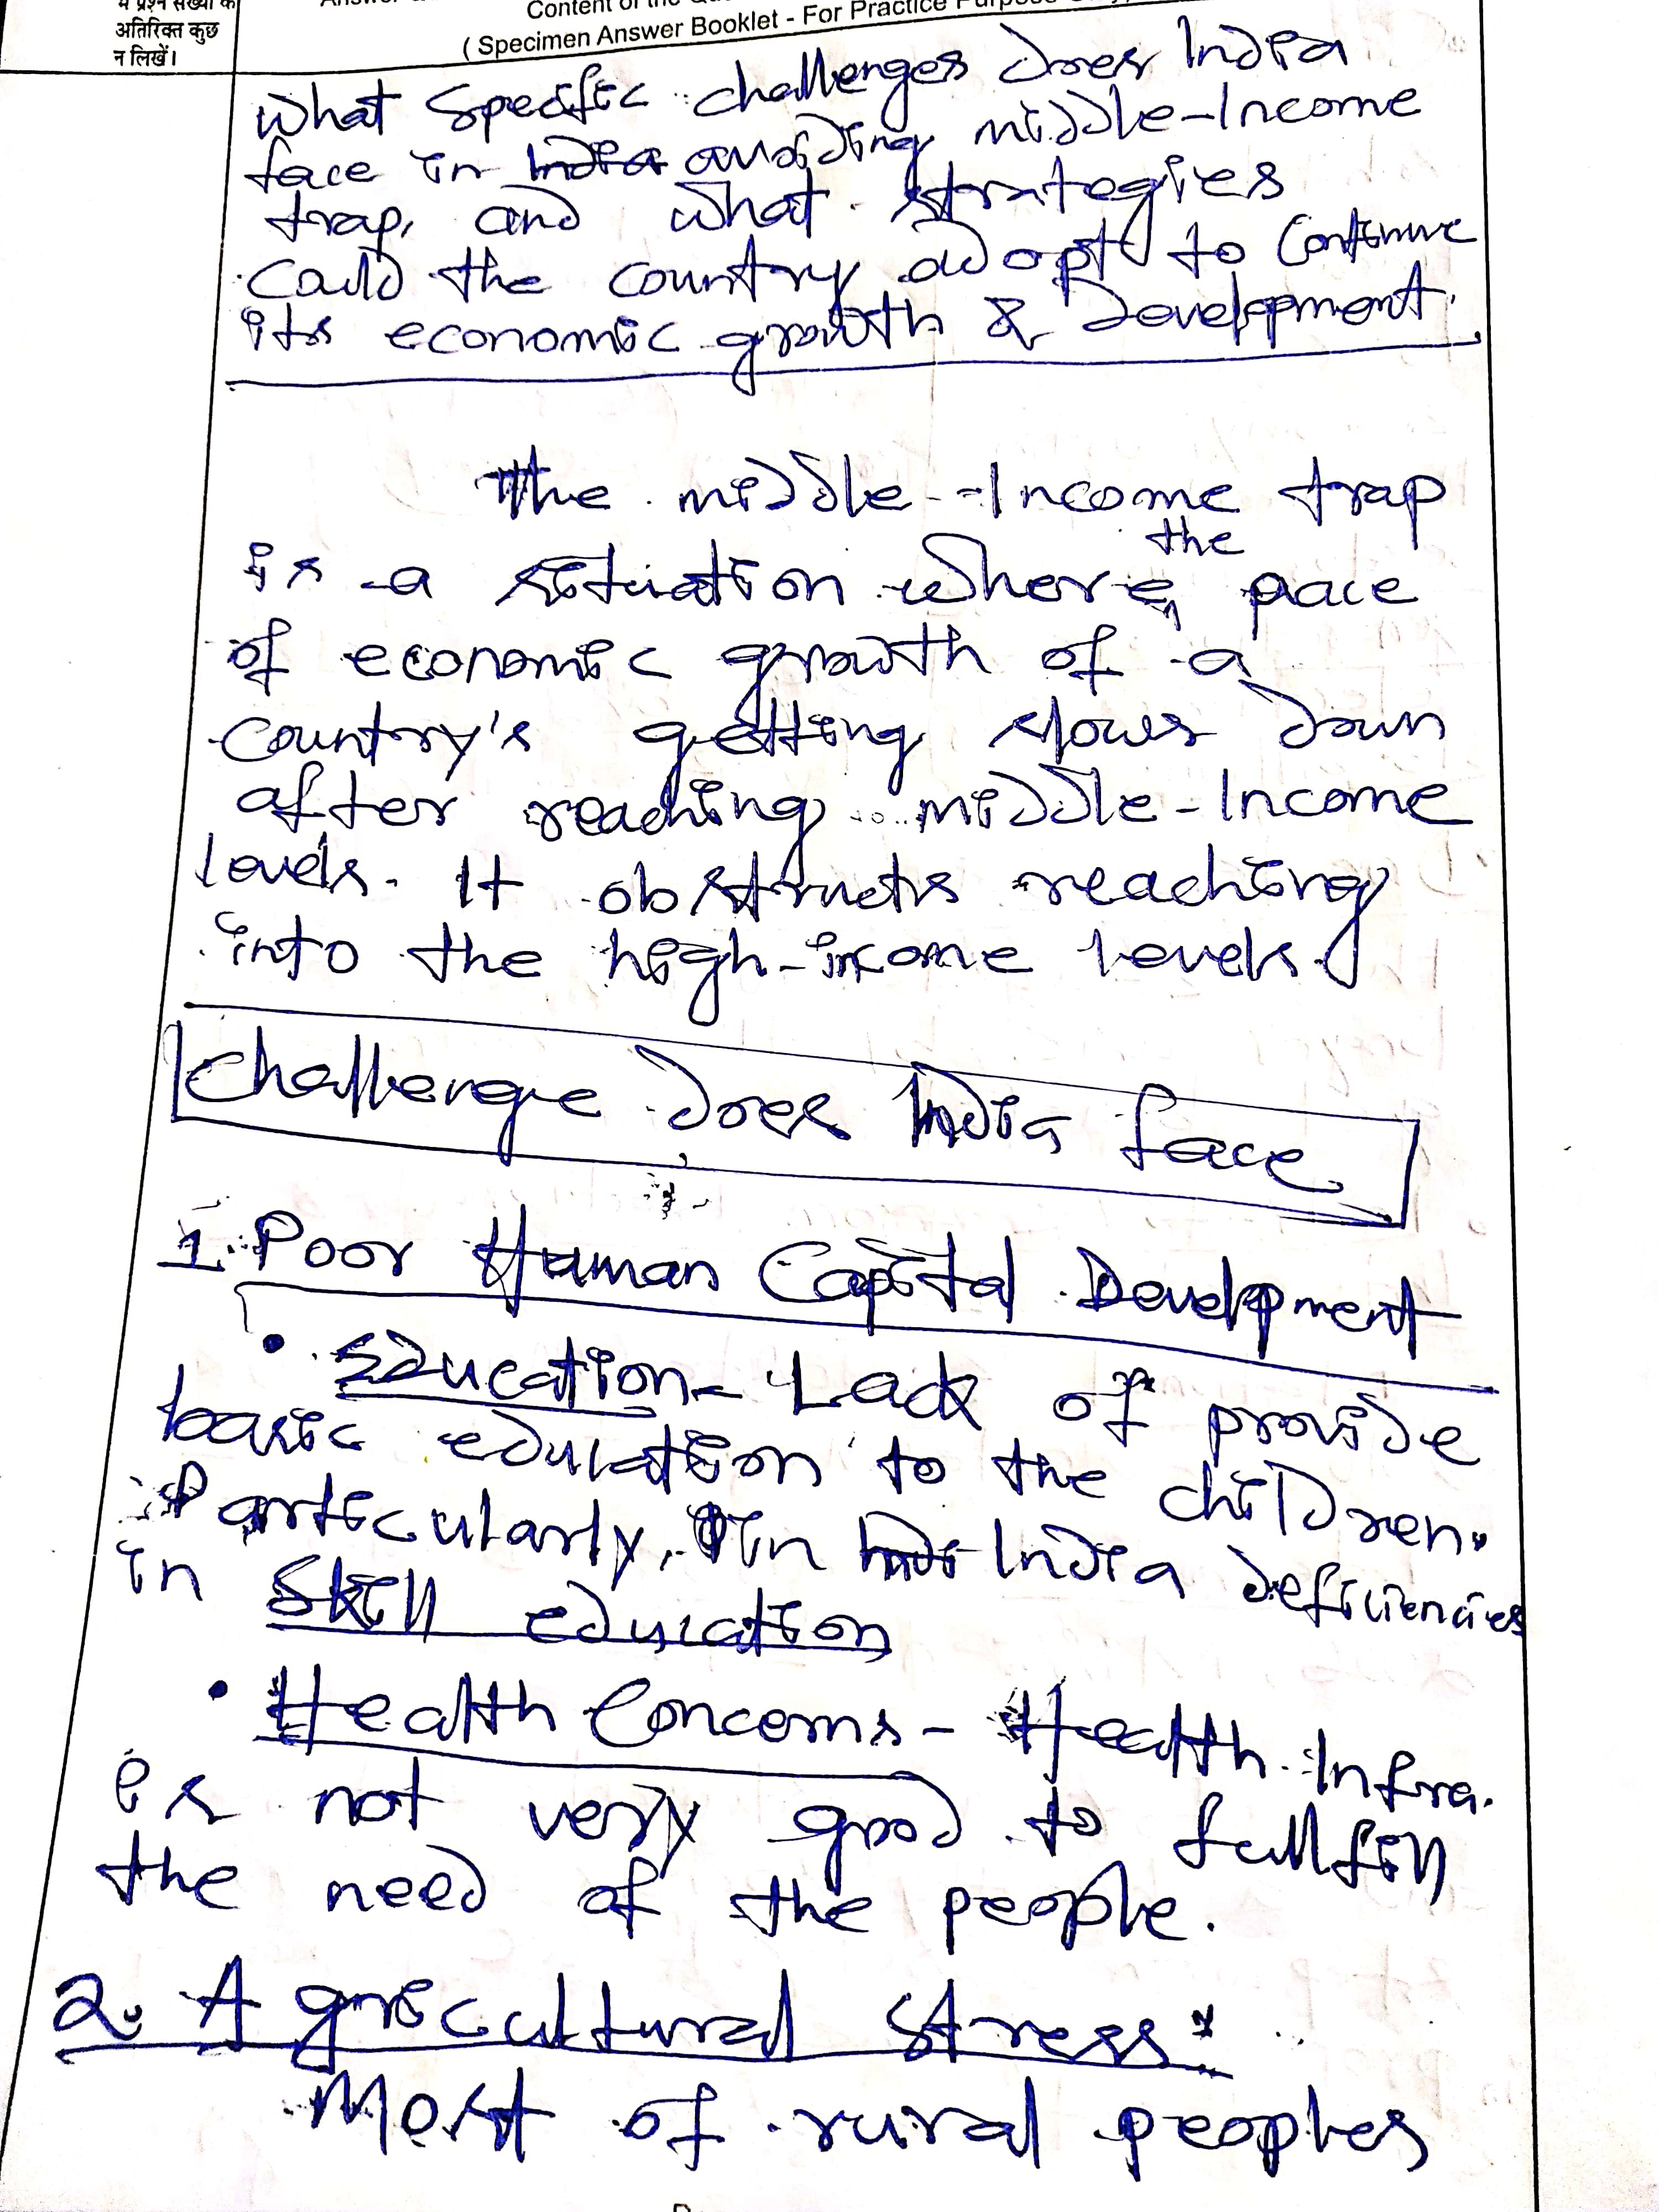 में प्रश्न संख्या के
अतिरिक्त कुछ
न लिखें।
Content of the
( Specimen Answer Booklet - For Practice Purpose Only
What Specific challenges does India
face in India avoiding middle-Income
trap, and what strategies
could the country adopt to Continue
its economic growth & Development.
The middle-Income trap
is a situation where the pace
of economic growth of a
country's getting slows down
after reaching middle-Income
levels. It obstructs reaching
into the high-income levels
Challenge does India face
1. Poor Human Capital Development
• Education- Lack of provide
basic education to the children.
Particularly, in India deficiencies
in Skill education
• Health Concerns - Health Infra.
is not very good to fullfill
the need of the people.
2. Agricultural Stress:
Most of rural peoples